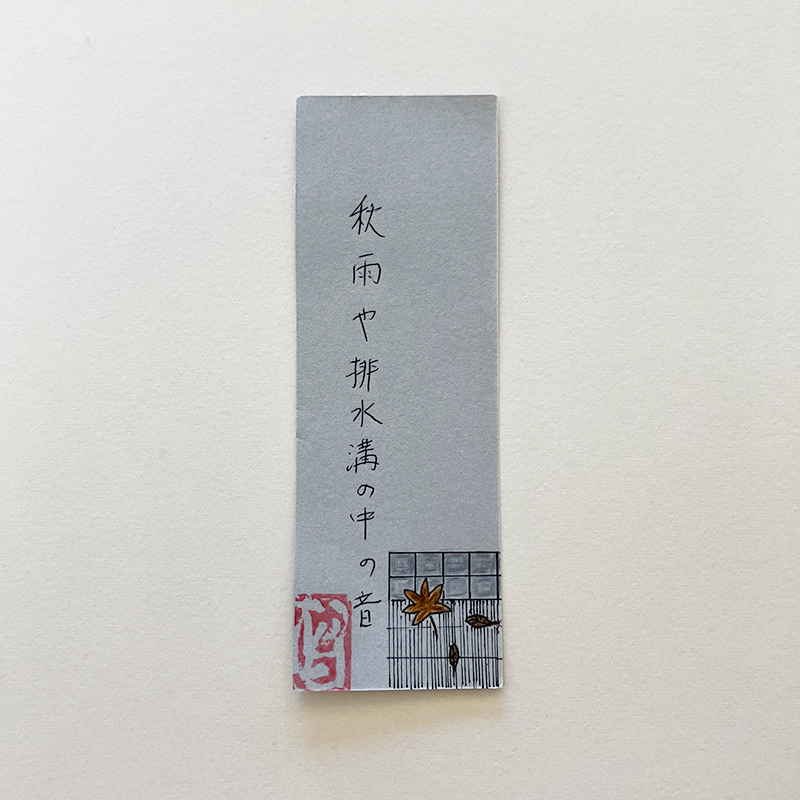 秋雨や排水溝の中の音